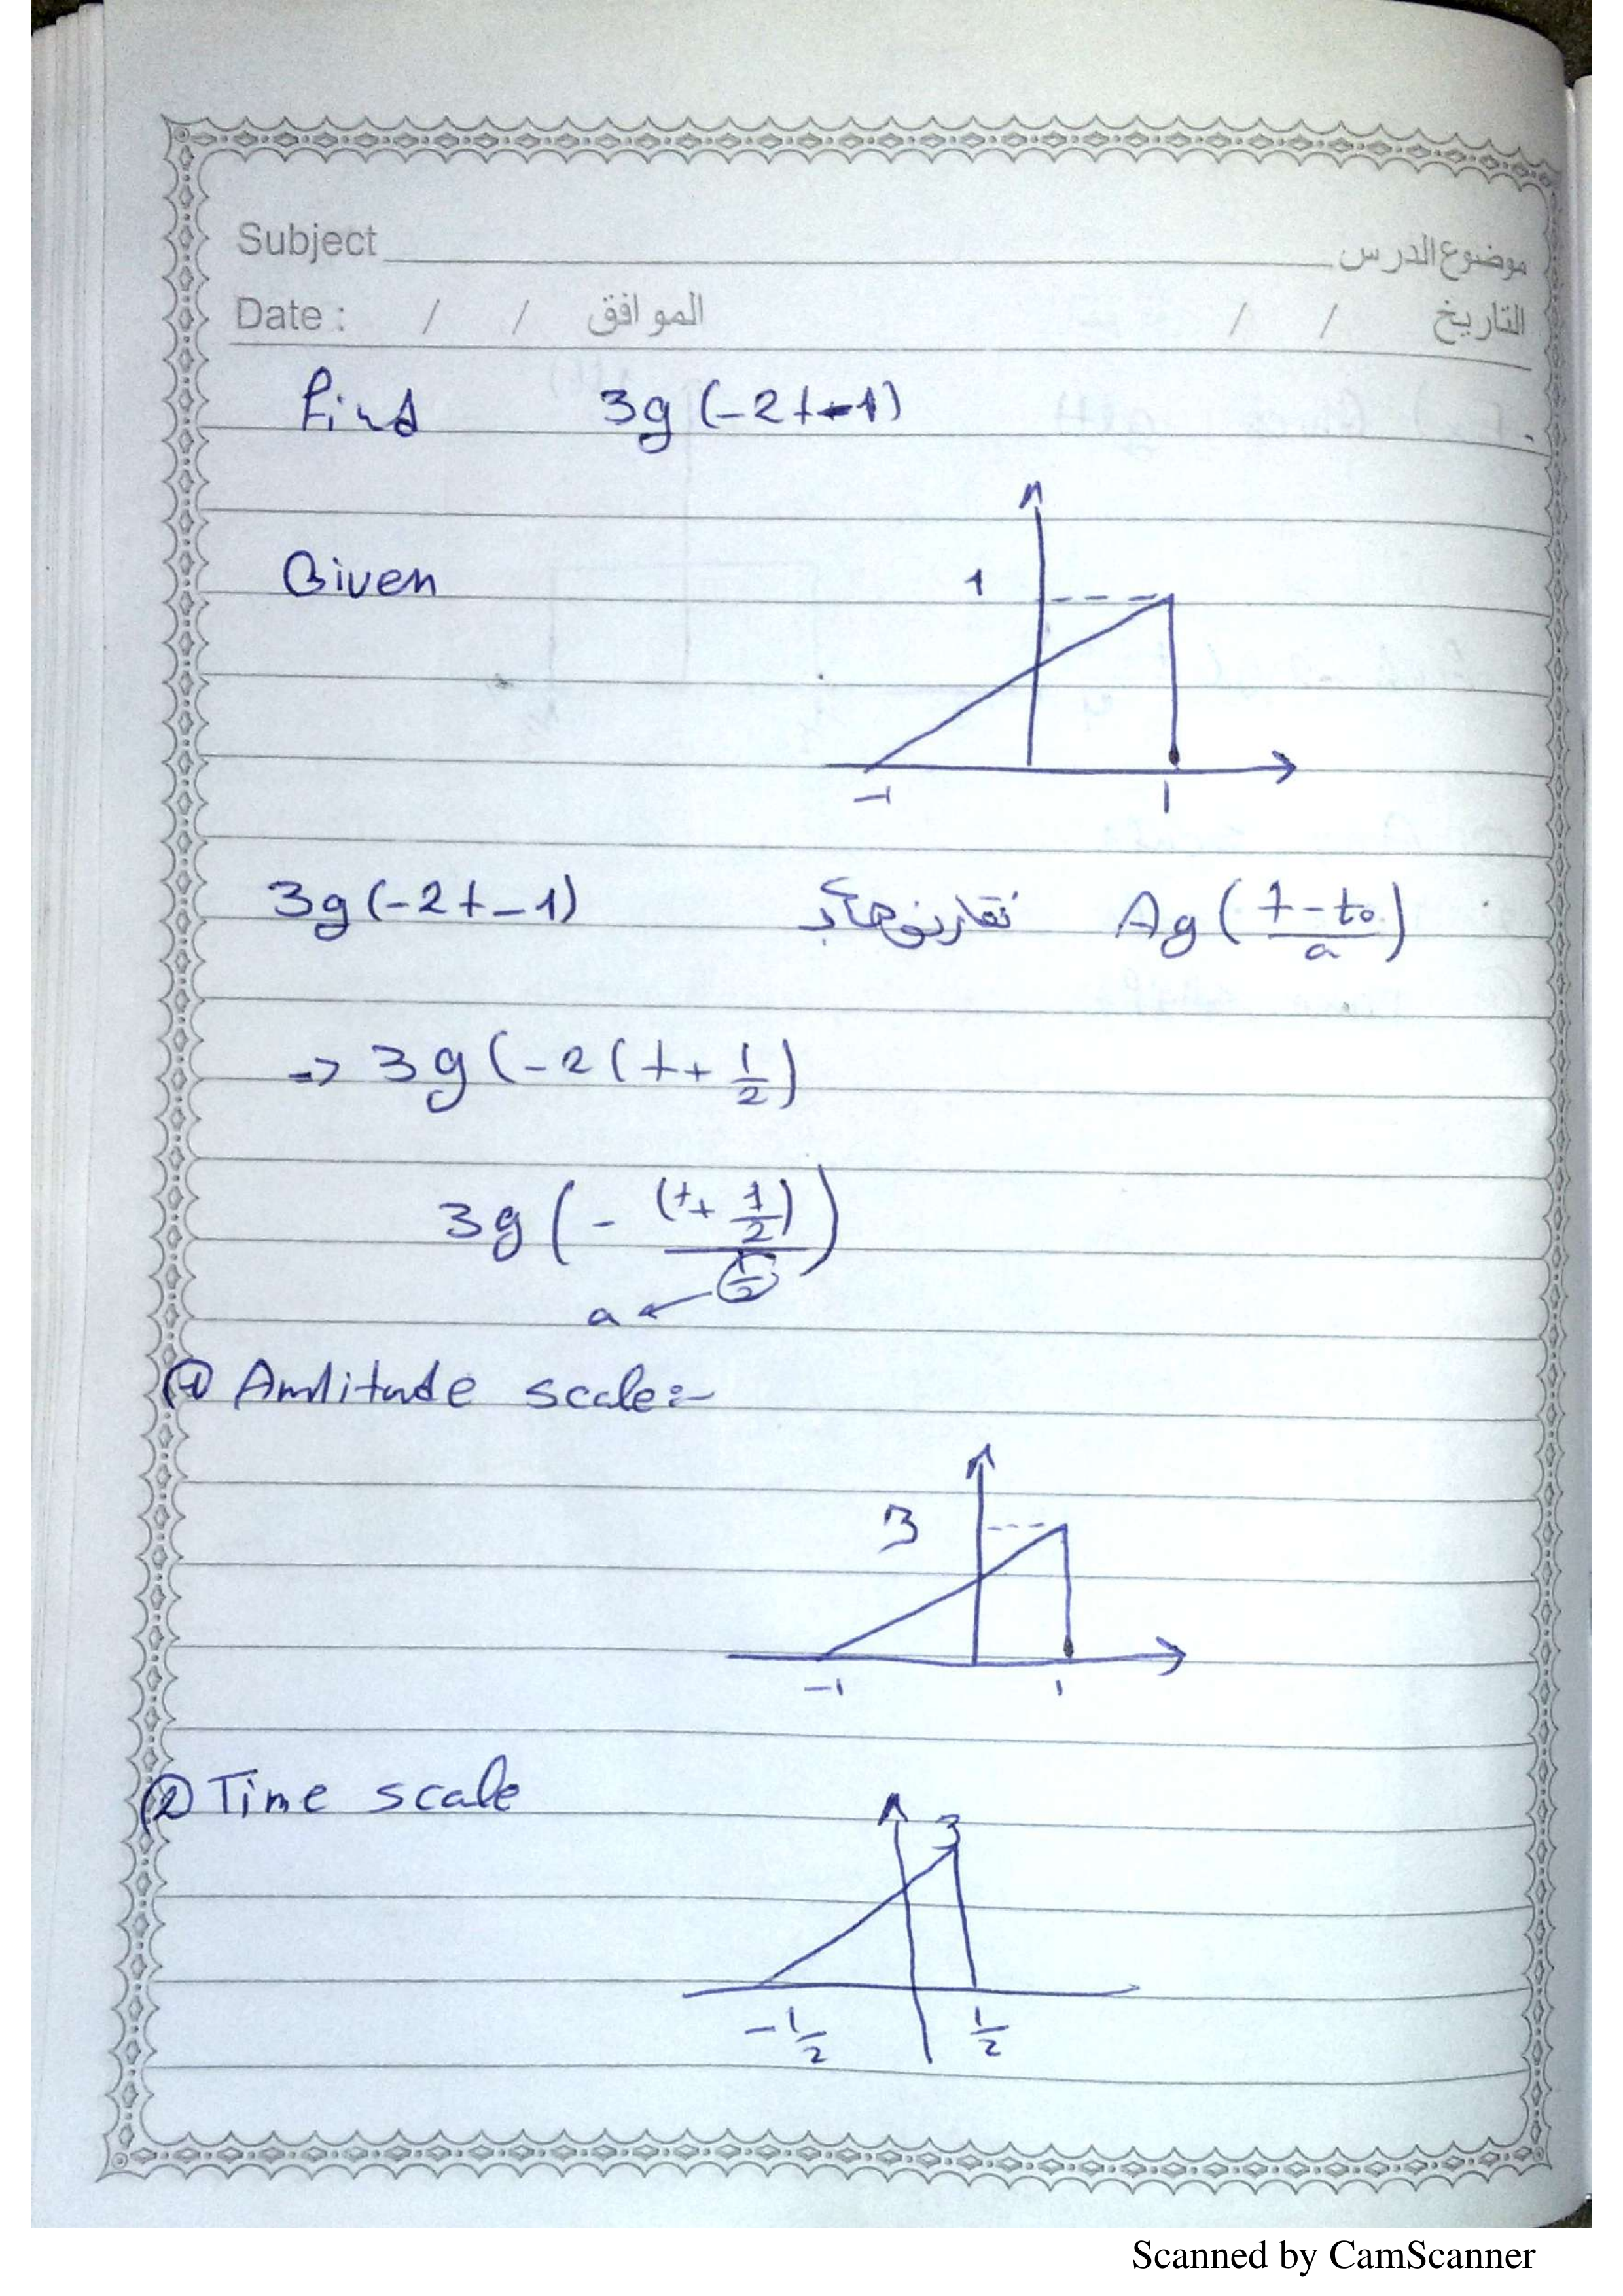 Subject موضوع الدرس
Date : / / الموافق / / التاريخ
Find 3g(-2t-1)
Given
1
-1 1
3g(-2t-1) نقارنها بـ Ag(\frac{t-t₀}{a})
=> 3g(-2(t+\frac{1}{2})
3g(-\frac{(t+\frac{1}{2})}{\frac{1}{2}})
a
① Amlitude scale:-
3
-1 1
② Time scale
3
-\frac{1}{2} \frac{1}{2}
Scanned by CamScanner